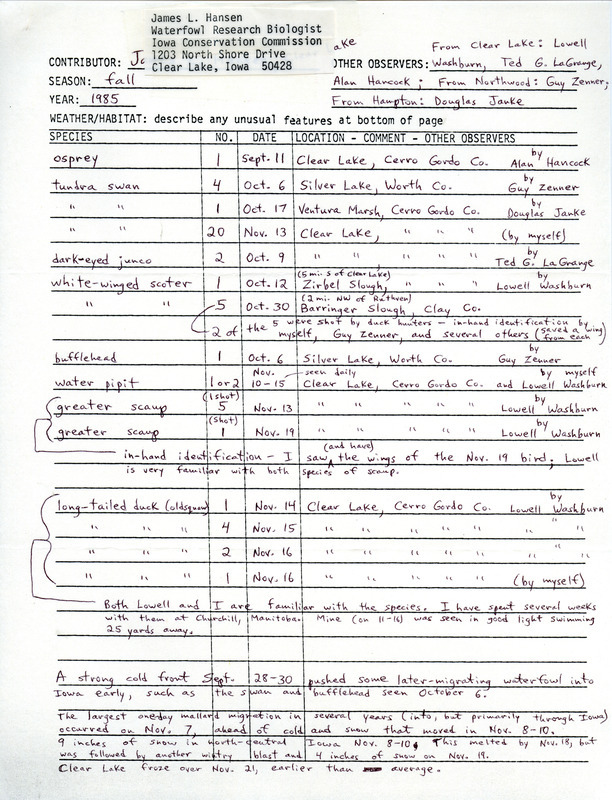 James L. Hansen
Waterfowl Research Biologist
Iowa Conservation Commission
1203 North Shore Drive
Clear Lake, Iowa 50428
ake From Clear Lake: Lowell
CONTRIBUTOR: Ja OTHER OBSERVERS: Washburn, Ted G. LaGrange,
SEASON: fall Alan Hancock; From Northwood: Guy Zenner;
YEAR: 1985 From Hampton: Douglas Janke
WEATHER/HABITAT: describe any unusual features at bottom of page
SPECIES NO. DATE LOCATION - COMMENT - OTHER OBSERVERS
osprey 1 Sept. 11 Clear Lake, Cerro Gordo Co. by Alan Hancock
tundra swan 4 Oct. 6 Silver Lake, Worth Co. by Guy Zenner
" " 1 Oct. 17 Ventura Marsh, Cerro Gordo Co. by Douglas Janke
" " 20 Nov. 13 Clear Lake, " " " (by myself)
dark-eyed junco 2 Oct. 9 " " " " " by Ted G. LaGrange
white-winged scoter 1 Oct. 12 (5 mi. S of Clear Lake) Zirbel Slough, " " " by Lowell Washburn
" " 5 Oct. 30 (2 mi. NW of Ruthven) Barringer Slough, Clay Co.
2 of the 5 were shot by duck hunters - in-hand identification by
myself, Guy Zenner, and several others (saved a wing from each)
bufflehead 1 Oct. 6 Silver Lake, Worth Co. by Guy Zenner
water pipit 1 or 2 Nov. 10-15 seen daily Clear Lake, Cerro Gordo Co. by myself and Lowell Washburn
greater scaup (1 shot) 5 Nov. 13 " " " " " by Lowell Washburn
greater scaup (shot) 1 Nov. 19 " " " " " by Lowell Washburn
in-hand identification - I saw (and have) the wings of the Nov. 19 bird; Lowell
is very familiar with both species of scaup.
long-tailed duck (oldsquaw) 1 Nov. 14 Clear Lake, Cerro Gordo Co. by Lowell Washburn
" " " 4 Nov. 15 " " " " " " " "
" " " 2 Nov. 16 " " " " " " " "
" " " 1 Nov. 16 " " " " " (by myself)
Both Lowell and I are familiar with the species. I have spent several weeks
with them at Churchill, Manitoba. Mine (on 11-16) was seen in good light swimming
25 yards away.
A strong cold front Sept. 28-30 pushed some later-migrating waterfowl into
Iowa early, such as the swan and bufflehead seen October 6.
The largest one-day mallard migration in several years (into, but primarily through Iowa)
occurred on Nov. 7, ahead of cold and snow that moved in Nov. 8-10.
9 inches of snow in north-central Iowa Nov. 8-10. This melted by Nov. 18, but
was followed by another wintry blast and 4 inches of snow on Nov. 19.
Clear Lake froze over Nov. 21, earlier than average.